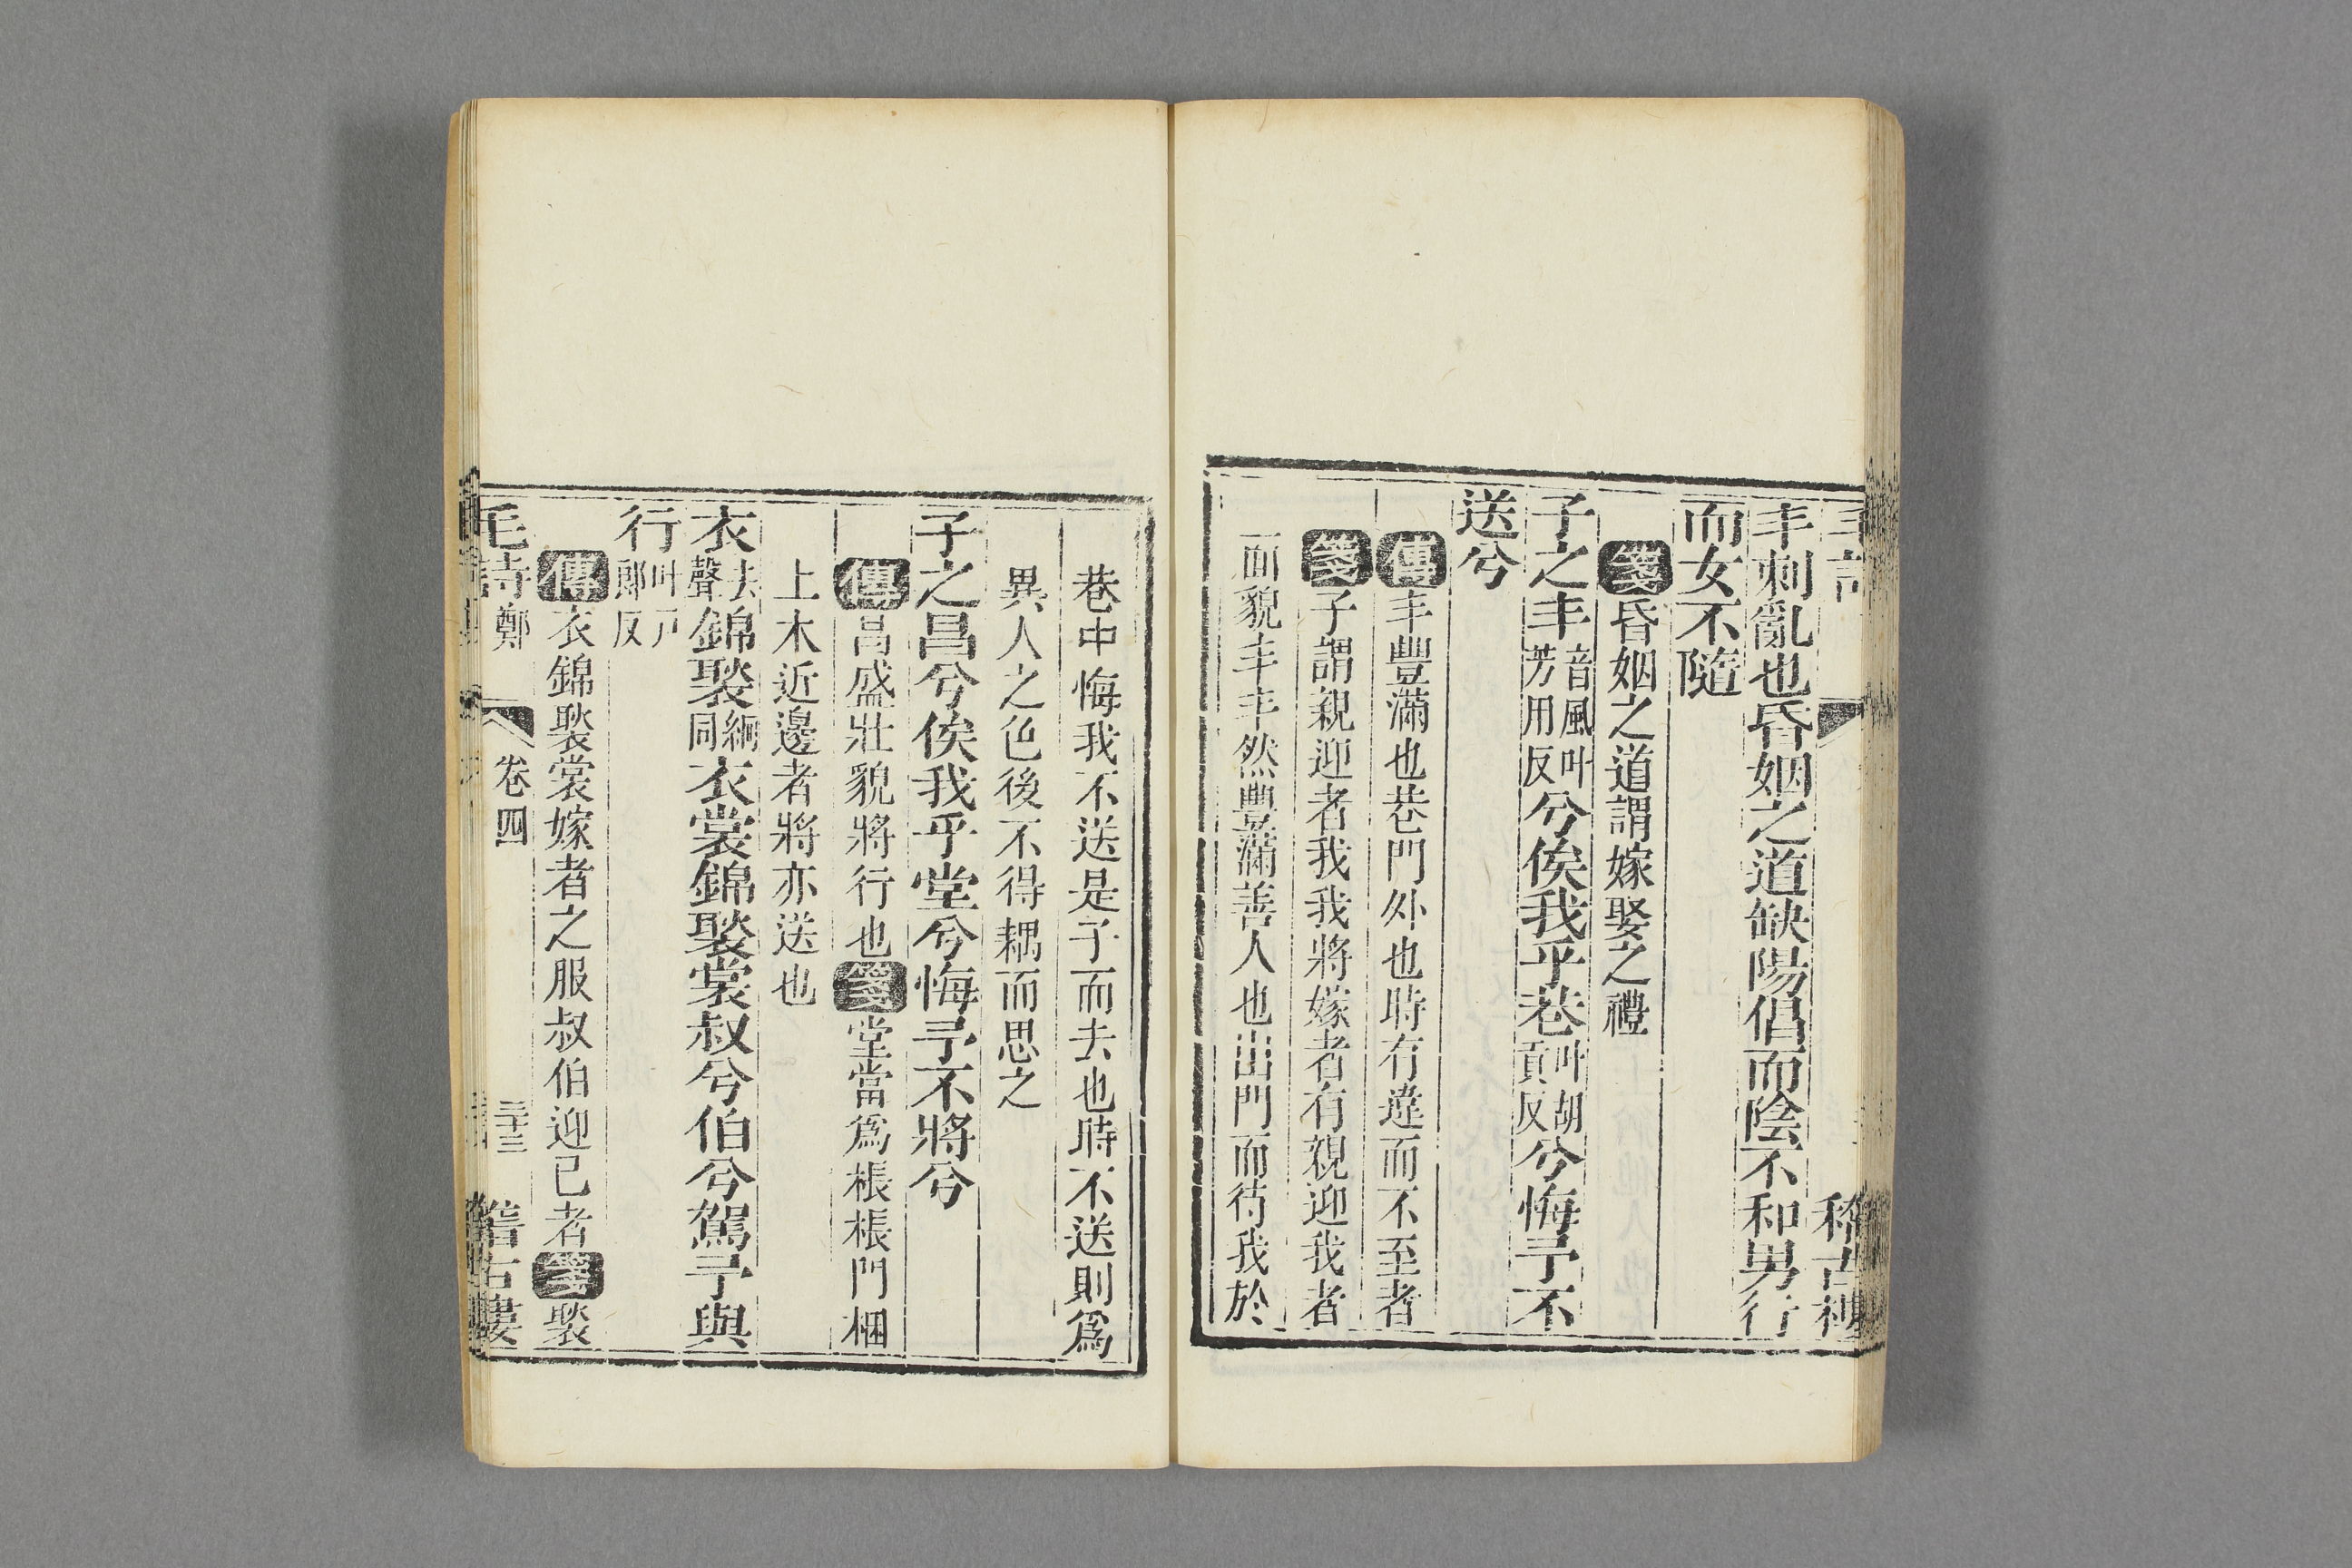 丰刺亂也昏姻之道缺陽倡而陰不和男行
而女不隨
箋昏姻之道謂嫁娶之禮
子之丰音風叶芳用反兮俟我乎巷叶胡貢反兮悔予不
送兮
傳丰豐滿也巷門外也時有違而不至者
箋子謂親迎者我我將嫁者有親迎我者
面貌丰丰然豐滿善人也出門而待我於
巷中悔我不送是子而去也時不送則爲
異人之色後不得耦而思之
子之昌兮俟我乎堂兮悔予不將兮
傳昌盛壯貌將行也箋堂當爲棖棖門梱
上木近邊者將亦送也
衣去聲錦褧絅同衣裳錦褧裳叔兮伯兮駕予與
行叶戸郎反
傳衣錦褧裳嫁者之服叔伯迎己者箋褧
毛詩 鄭 卷四 二十三 稽古樓